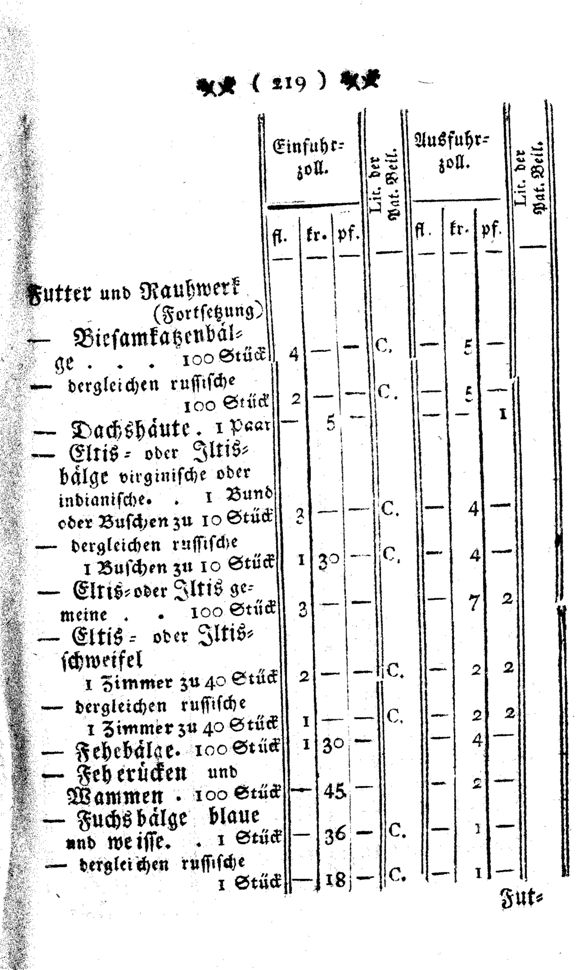 ( 219 )
Einfuhr=
zoll.
Lit. der
Pat. Beil.
Ausfuhr=
zoll.
Lit. der
Pat. Beil.
fl. kr. pf. fl. kr. pf.
— — — — — — — —
Futter und Rauhwerk
(Fortsetzung)
— Biesamkatzenbäl=
ge . . . 100 Stück 4 — — C. — 5 —
— dergleichen russische
100 Stück 2 — — C. — 5 —
— Dachshäute. 1 Paar — 5 — — 1
— Eltis= oder Iltis=
bälge virginische oder
indianische. . 1 Bund
oder Buschen zu 10 Stück 3 — — C. — 4 —
— dergleichen russische
1 Buschen zu 10 Stück 1 30 — C. — 4 —
— Eltis=oder Iltis ge=
meine . . 100 Stück 3 — — — 7 2
— Eltis= oder Iltis=
schweifel
1 Zimmer zu 40 Stück 2 — — C. — 2 2
— dergleichen russische
1 Zimmer zu 40 Stück 1 — — C. — 2 2
— Fehebälge. 100 Stück 1 30 — — 4 —
— Feherücken und
Wammen . 100 Stück — 45 — — 2 —
— Fuchsbälge blaue
und weisse. . 1 Stück — 36 — C. — 1 —
— dergleichen russische
1 Stück — 18 — C. — 1 —
Fut=